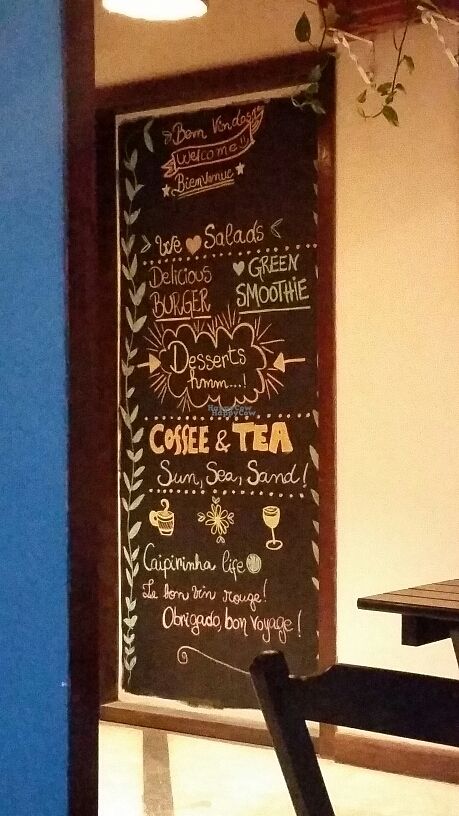 Bem Vindos
Welcome!!
Bienvenue
We Salads
Delicious
BURGER
GREEN
SMOOTHiE
Desserts
hmm...!
COffEE & TEA
Sun, Sea, Sand!
Caipirinha life
Le bon vin rouge!
Obrigado, bon voyage!
HappyCow
HappyCow